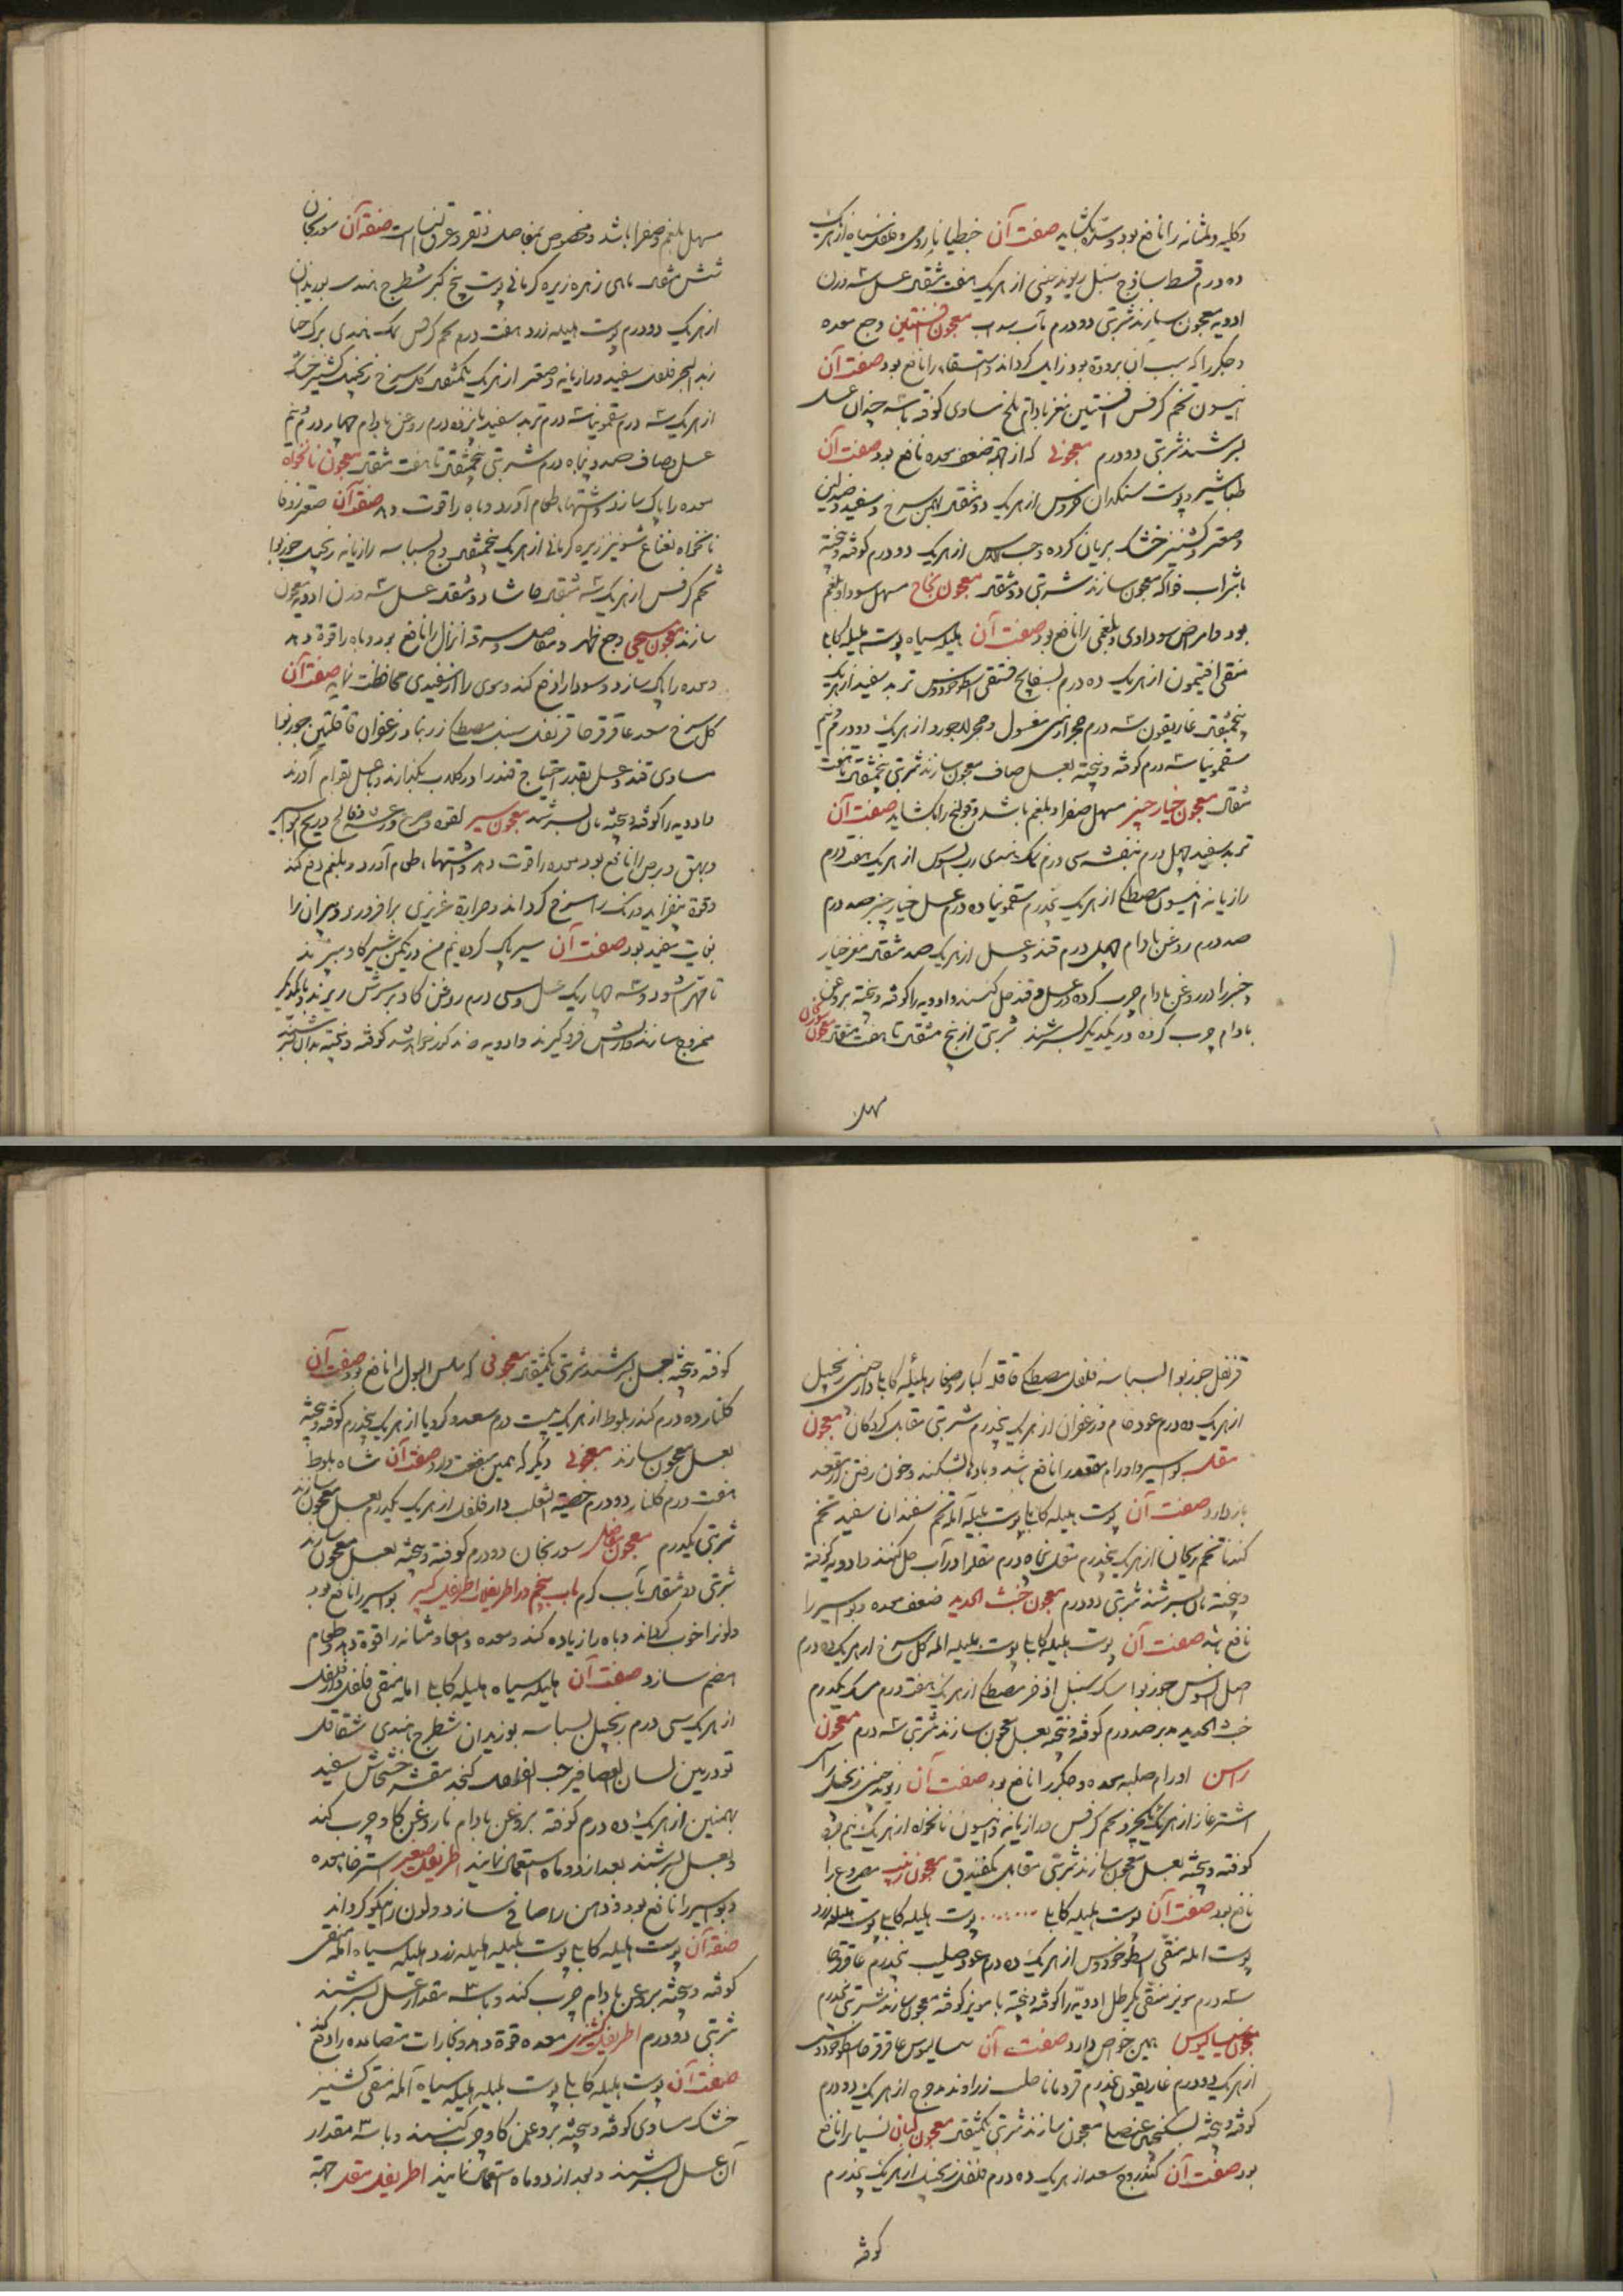 وکلیه و مثانه را نافع بود و سدّه بکشاید صفت آن جنطیانا رومی و فلفل سیاه از هریک
ده درم قسط ساذج سنبل ریوند چینی از هریک هفت مثقال عسل سه وزن
ادویه معجون سازند شربتی دو درم بآب سداب معجون افسنتین وجع معده
و جکر را که سبب آن برودة بود زایل کرداند و استسقا را نافع بود صفت آن
انیسون تخم کرفس افسنتین مغز بادام تلخ مساوی کوفته با سه چندان عسل
بسرشند شربتی دو درم معجونی که از جهة ضعف معده نافع بود صفت آن
طباشیر و پوست سنکدان خروس از هریک دو مثقال بهمن سرخ و سفید
و صعتر و کشنیز خشک بریان کرده و حب الآس از هریک دو درم کوفته و بیخته
بشراب فواکه معجون سازند شربتی دو مثقال معجون نجاح مسهل سودا و بلغم
بود و امراض سوداوی و بلغمی را نافع بود صفت آن هلیله سیاه پوست هلیله کابلی
منقی افتیمون از هریک ده درم بسفایج فستقی اسطوخودوس تربد سفید از هریک
پنجمثقال غاریقون سه درم حجر ارمنی مغسول و حجر لاجورد از هریک دو درم و نیم
سقمونیا سه درم کوفته و بیخته بعسل صاف معجون سازند شربتی پنجمثقال تا هفت
مثقال معجون خیار چنبر مسهل صفرا و بلغم باشد و قولنج را بکشاید صفت آن
تربد سفید چهل درم بنفشه سی درم نمک هندی رب السوس از هریک هفت درم
رازیانه انیسون مصطکی از هریک پنجدرم سقمونیا ده درم عسل خیار چنبر صد درم
صد درم روغن بادام چهل درم قند و عسل از هریک صد مثقال مغز خیار
چنبر را در روغن بادام چرب کرده در عسل و قند حل کنند و ادویه را کوفته و بیخته بروغن
بادام چرب کرده در یکدیکر بسرشند شربتی از پنج مثقال تا هفت مثقال معجون سورنجان
مسهل
مسهل بلغم و صفرا باشد و مخصوص بمفاصل و نقرس و عرق النسا است صفة آن سورنجان
شش مثقال ماهی زهره زیره کرمانی پوست بیخ کبر شیطرج هندی بوزیدان
از هریک دو درم پوست هلیله زرد هفت درم تخم کرفس نمک هندی برک حنا
زبد البحر فلفل سفید و رازیانه و صعتر از هریک یکمثقال کل سرخ زنجبیل کشنیز خشک
از هریک سه درم سقمونیا سه درم تربد سفید پانزده درم روغن بادام چهار درم و نیم
عسل صاف صد و پنجاه درم شربتی پنجمثقال تا هفت مثقال معجون نانخواه
معده را پاک سازد و اشتهاء طعام آورد و باه را قوت دهد صفة آن صعتر زوفا
نانخواه نعناع شونیز زیره کرمانی از هریک پنجمثقال وج بسباسه رازیانه زنجبیل جوزبوا
تخم کرفس از هریک سه مثقال حاشا دو مثقال عسل سه وزن ادویه معجون
سازند معجون مسیحی وجع ظهر و مفاصل و سرعة انزال را نافع بود و باه را قوة دهد
و معده را پاک سازد و سودا را دفع کند و موی را از سفیدی محافظت نماید صفت آن
کل سرخ سعد عاقرقرحا قرنفل سنبل مصطکی زرنباد زعفران قاقلتین جوزبوا
مساوی قند و عسل بقدر احتیاج قند را در کلاب بکدازند و با عسل بقوام آورند
و ادویه را کوفته و بیخته بآن بسرشند معجون سیر لقوه و صرع و رعشه و فالج و ریح البواسیر
و بهق و برص را نافع بود معده را قوت دهد و اشتهاء طعام آورد و بلغم دفع کند
و قوة بیفزاید و رنک را سرخ کرداند و حرارة غریزی برافروزد و پیران را
بغایت مفید بود صفت آن سیر پاک کرده نیم من در یکمن شیر کاو بپزند
تا مهرّا شود و سه چهاریک عسل و سی درم روغن کاو بر سرش ریزند و با یکدیکر
ممزوج سازند و از آتش فرو کیرند و ادویه مذکوره را کوفته و بیخته بدان بسرشند
قرنفل جوزبوا بسباسه فلفل مصطکی قاقله کبار و صغار هلیله کابلی دارچینی زنجبیل
از هریک ده درم عود خام و زعفران از هریک پنجدرم شربتی مقابل کردکان معجون
مقل بواسیر و اورام مقعد را نافع باشد و بادها بشکند و خون رفتن از مقعد
باز دارد صفت آن پوست هلیله کابلی پوست بلیله آمله تخم سفندان سفید تخم
کندنا تخم ریحان از هریک پنجدرم مقل پنجاه درم مقل را در آب حل کنند و ادویه کوفته
و بیخته بآن بسرشند شربتی دو درم معجون خبث الحدید ضعف معده و بواسیر را
نافع باشد صفت آن پوست هلیله کابلی پوست بلیله آمله کل سرخ از هریک ده درم
اصل السوس جوزبوا سک سنبل اذخر مصطکی از هریک هفت درم مسک یکدرم
خبث الحدید مدبر صد درم کوفته و بیخته بعسل معجون سازند شربتی سه درم معجون
راسن اورام صلبه معده و جکر را نافع بود صفت آن ریوند چینی زنجبیل راسن
اشترغاز از هریک یکجزو تخم کرفس و رازیانه و انیسون نانخواه از هریک نیم جزو
کوفته و بیخته بعسل معجون سازند شربتی مقابل یکفندق معجون زبیب مصروع را
نافع بود صفت آن پوست هلیله کابلی ........ پوست هلیله کابلی پوست هلیله زرد
پوست آمله منقی اسطوخودوس از هریک ده درم عود صلیب پنجدرم عاقرقرحا
سه درم مویز منقی یکرطل ادویه را کوفته و بیخته با مویز کوفته معجون سازند شربتی پنجدرم
معجون سیسالیوس همین خواص دارد صفت آن سیسالیوس عاقرقرحا اسطوخودوس
از هریک دو درم غاریقون پنجدرم قردمانا حلتیت زراوند مدحرج از هریک دو درم
کوفته و بیخته بسکنجبین عنصلی معجون سازند شربتی یکمثقال معجون لبان نسیان را نافع
بود صفت آن کندر وج سعد از هریک ده درم فلفل زنجبیل از هریک پنجدرم
کوفته
کوفته و بیخته بعسل بسرشند شربتی یکمثقال معجونی که سلس البول را نافع بود صفت آن
کلنار ده درم کندر بلوط از هریک بیست درم سعد و کرویا از هریک پنجدرم کوفته و بیخته
بعسل معجون سازند معجونی دیکر که همین منفعت دارد صفت آن شاه بلوط
هفت درم کلنار دو درم خصیة الثعلب دارفلفل از هریک یکدرم بعسل معجون سازند
شربتی یکدرم معجون مفاصل سورنجان دو درم کوفته و بیخته بعسل معجون سازند
شربتی دو مثقال بآب کرم باب پنجم در اطریفلات اطریفل کبیر بواسیر را نافع بود
و لون را خوب کرداند و باه را زیاده کند و معده و امعا و مثانه را قوة دهد و طعام
هضم سازد صفت آن هلیله سیاه هلیله کابلی آمله منقی فلفل دارفلفل
از هریک سی درم زنجبیل بسباسه بوزیدان شیطرج هندی شقاقل
تودریین لسان العصافیر حب القلقل کنجد مقشر خشخاش سفید
بهمنین از هریک ده درم کوفته بروغن بادام یا روغن کاو چرب کند
و بعسل بسرشند بعد از دو ماه استعمال نمایند اطریفل صغیر استرخاء معده
و بواسیر را نافع بود و ذهن را صافی سازد و لون را نیکو کرداند
صفة آن پوست هلیله کابلی پوست بلیله هلیله زرد هلیله سیاه آمله منقی
کوفته و بیخته بروغن بادام چرب کند و با سه مقدار عسل بسرشند
شربتی دو درم اطریفل کشنیزی معده قوة دهد و بخارات متصاعده را دفع کند
صفت آن پوست هلیله کابلی پوست بلیله هلیله سیاه آمله منقی کشنیز
خشک مساوی کوفته و بیخته بروغن کاو چرب کنند و با سه مقدار
آن عسل بسرشند و بعد از دو ماه استعمال نمایند اطریفل مقل جهة